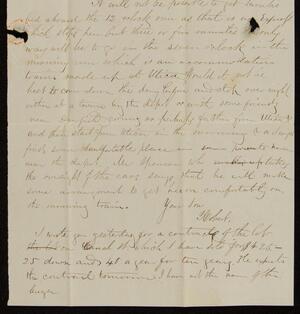 It will not be possible to get
on board the 12 o'clock one as that is an express
which stops here but three or five minutes & only
way will be to go in the seven o'clock in the
morning one which is an accommodation
train made up at Utica Would it not be
best to come down the day before and stop over night
either at a tavern by the depot or with some friends
near
and then start from Utica in the morning &
find some comfortable place in some
near the depot Mr Spencer who
the oversight of the cars says that he will make
some arrangement to get on comfortably on
the morning train.
Your Son
Robert.
I wrote you yesterday for a contract of the lot
on Canal st which I have sold for $425-
25 down and 4 a year for ten years He expects
the contract tomorrow I have not the name of the
buyer